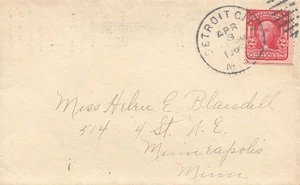 DETROIT
APR
3
M
2
Miss Helen E Blaisdell
514 4 St. N. E.
Minneapolis
Minn